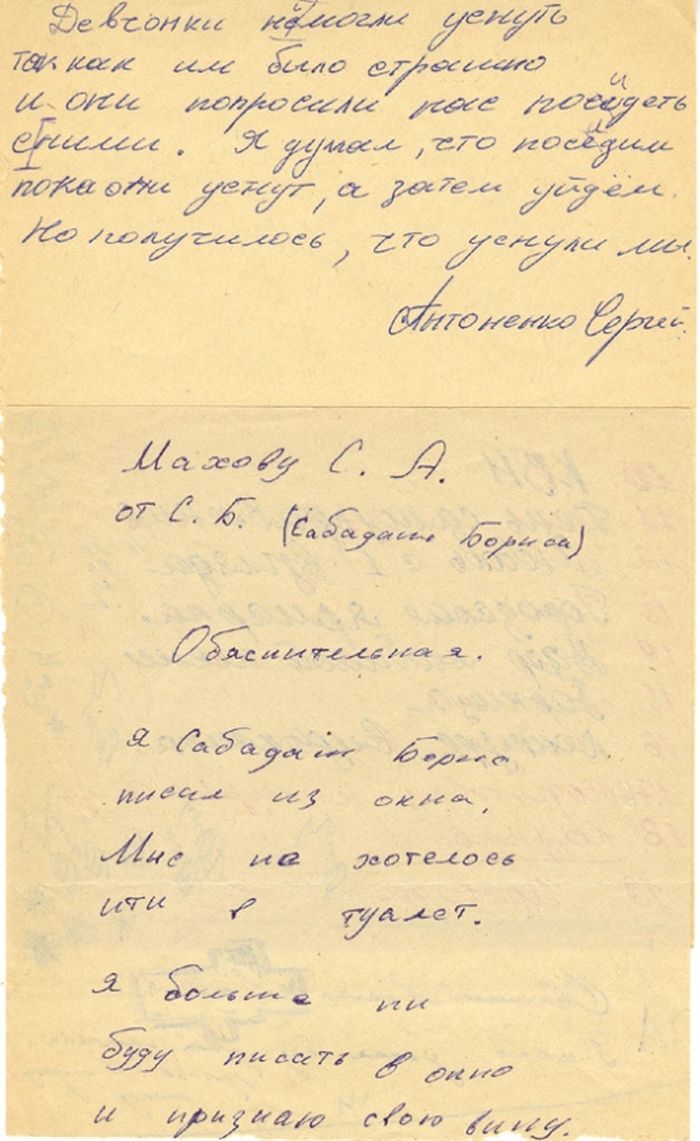 Девчонки не могли уснуть
так как им было страшно
и они попросили нас посидеть
с ними. Я думал, что посидим
пока они уснут, а затем уйдём.
Но получилось, что уснули мы.
Антоненко Сергей
Махову С. А.
от С. Б. (Сабадаш Бориса)
Обяснительная.
Я Сабадаш Борис
писал из окна,
Мне не хотелось
ити в туалет.
Я больше ни
буду писать в окно
и признаю свою вину.